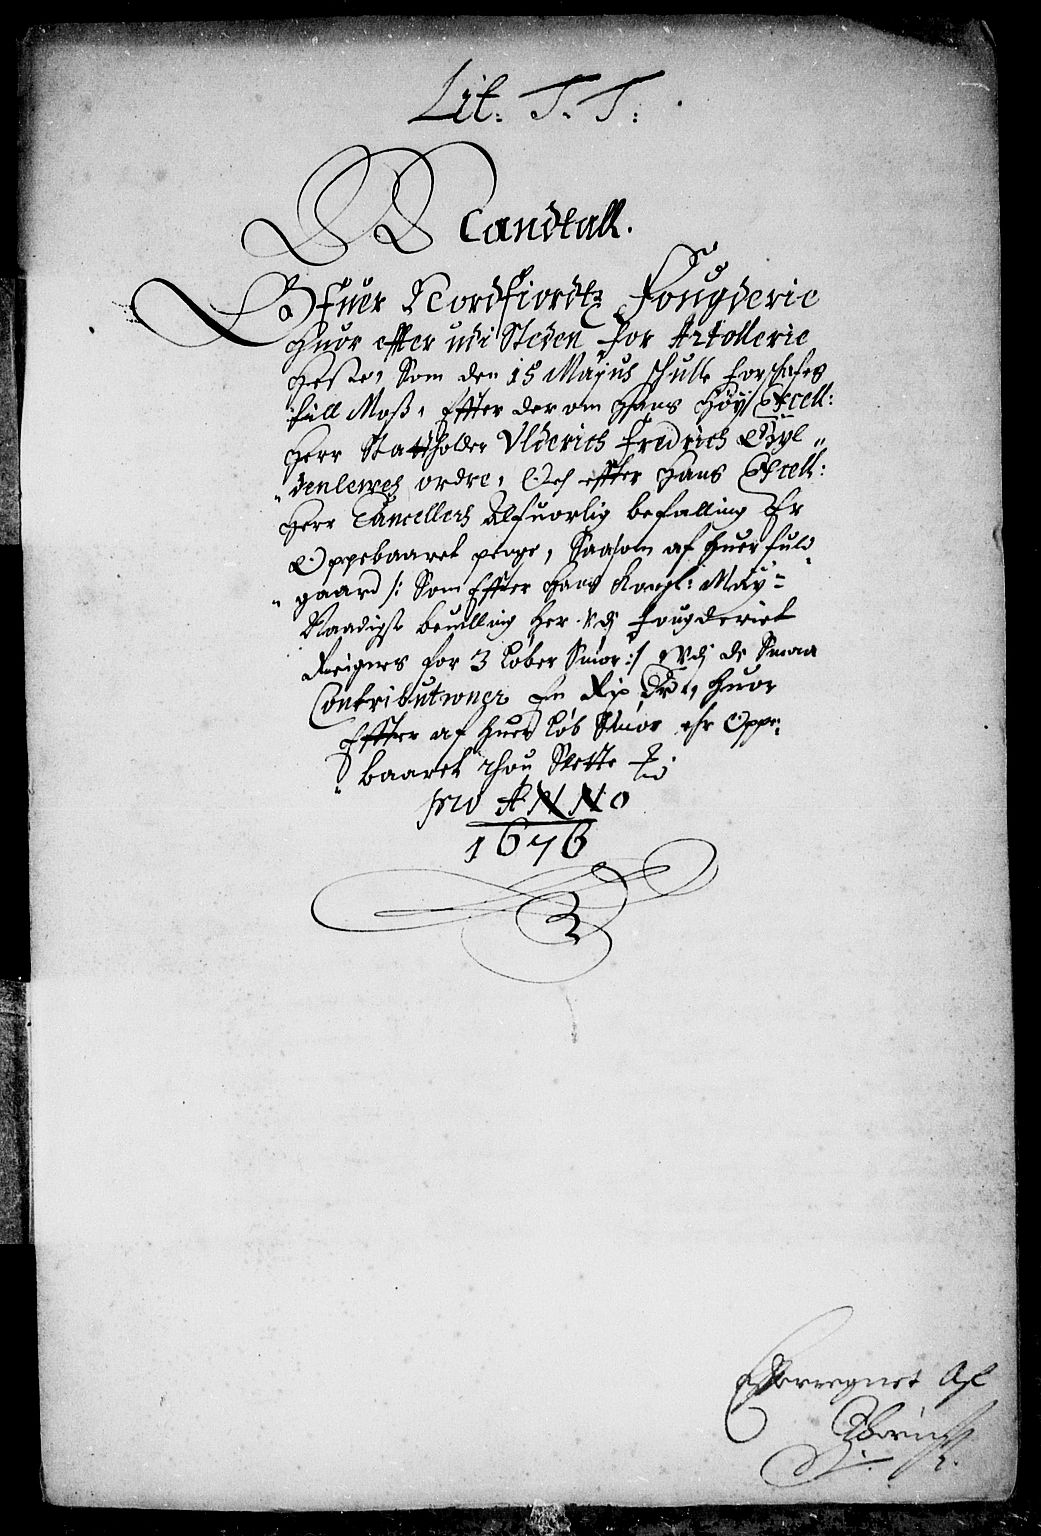 Lit. T. T:
Mandtall.
Ofuer Nordfiordtz Fougderie
huor effter udi Steden for Artollerie
heste, Som den 15 Majus schulle forschafes
till Moss, Effter der om hans Höy Excell:
Herr Stattholder Ulderich Fredrich Gyl„
„denlewes ordre, Och effter hans Excell:
Herr Cancellers Alfuorlig befalling Er
Oppebaaret penge, Saasom af huer fuld„
„gaard /: Som Effter hans Kongl: May=
Naadigste beuilling her Vdj fougderiet
Reignes for 3 Løber Smør :/ Vdj de Smaa
Contributioner En Rix dr, huor
Effter af huer Løb Smør ehr Oppe„
„baaret thou Slette
pro ANNO
1676
Efterregnet Af